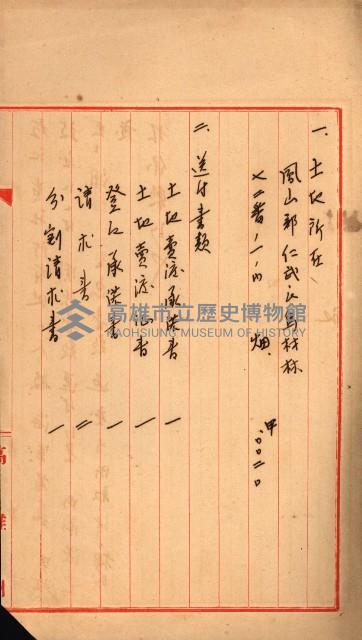 一、土地所在
鳳山郡仁武庄烏材林
七二番ノ一ノ内 畑 甲〇、〇〇二〇
二、送付書類
土地賣渡承諾書 一
土地賣渡証書 一
登記承諾書 一
請求書 二
分割請求書 一
高雄州
高雄市立歷史博物館
KAOHSIUNG MUSEUM OF HISTORY